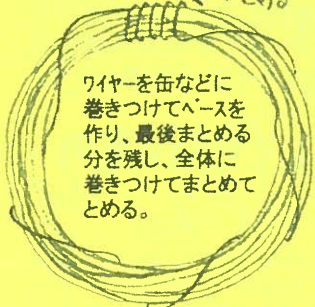 ワイヤーを缶などに
巻きつけてベースを
作り、最後まとめる
分を残し、全体に
巻きつけてまとめて
とめる。